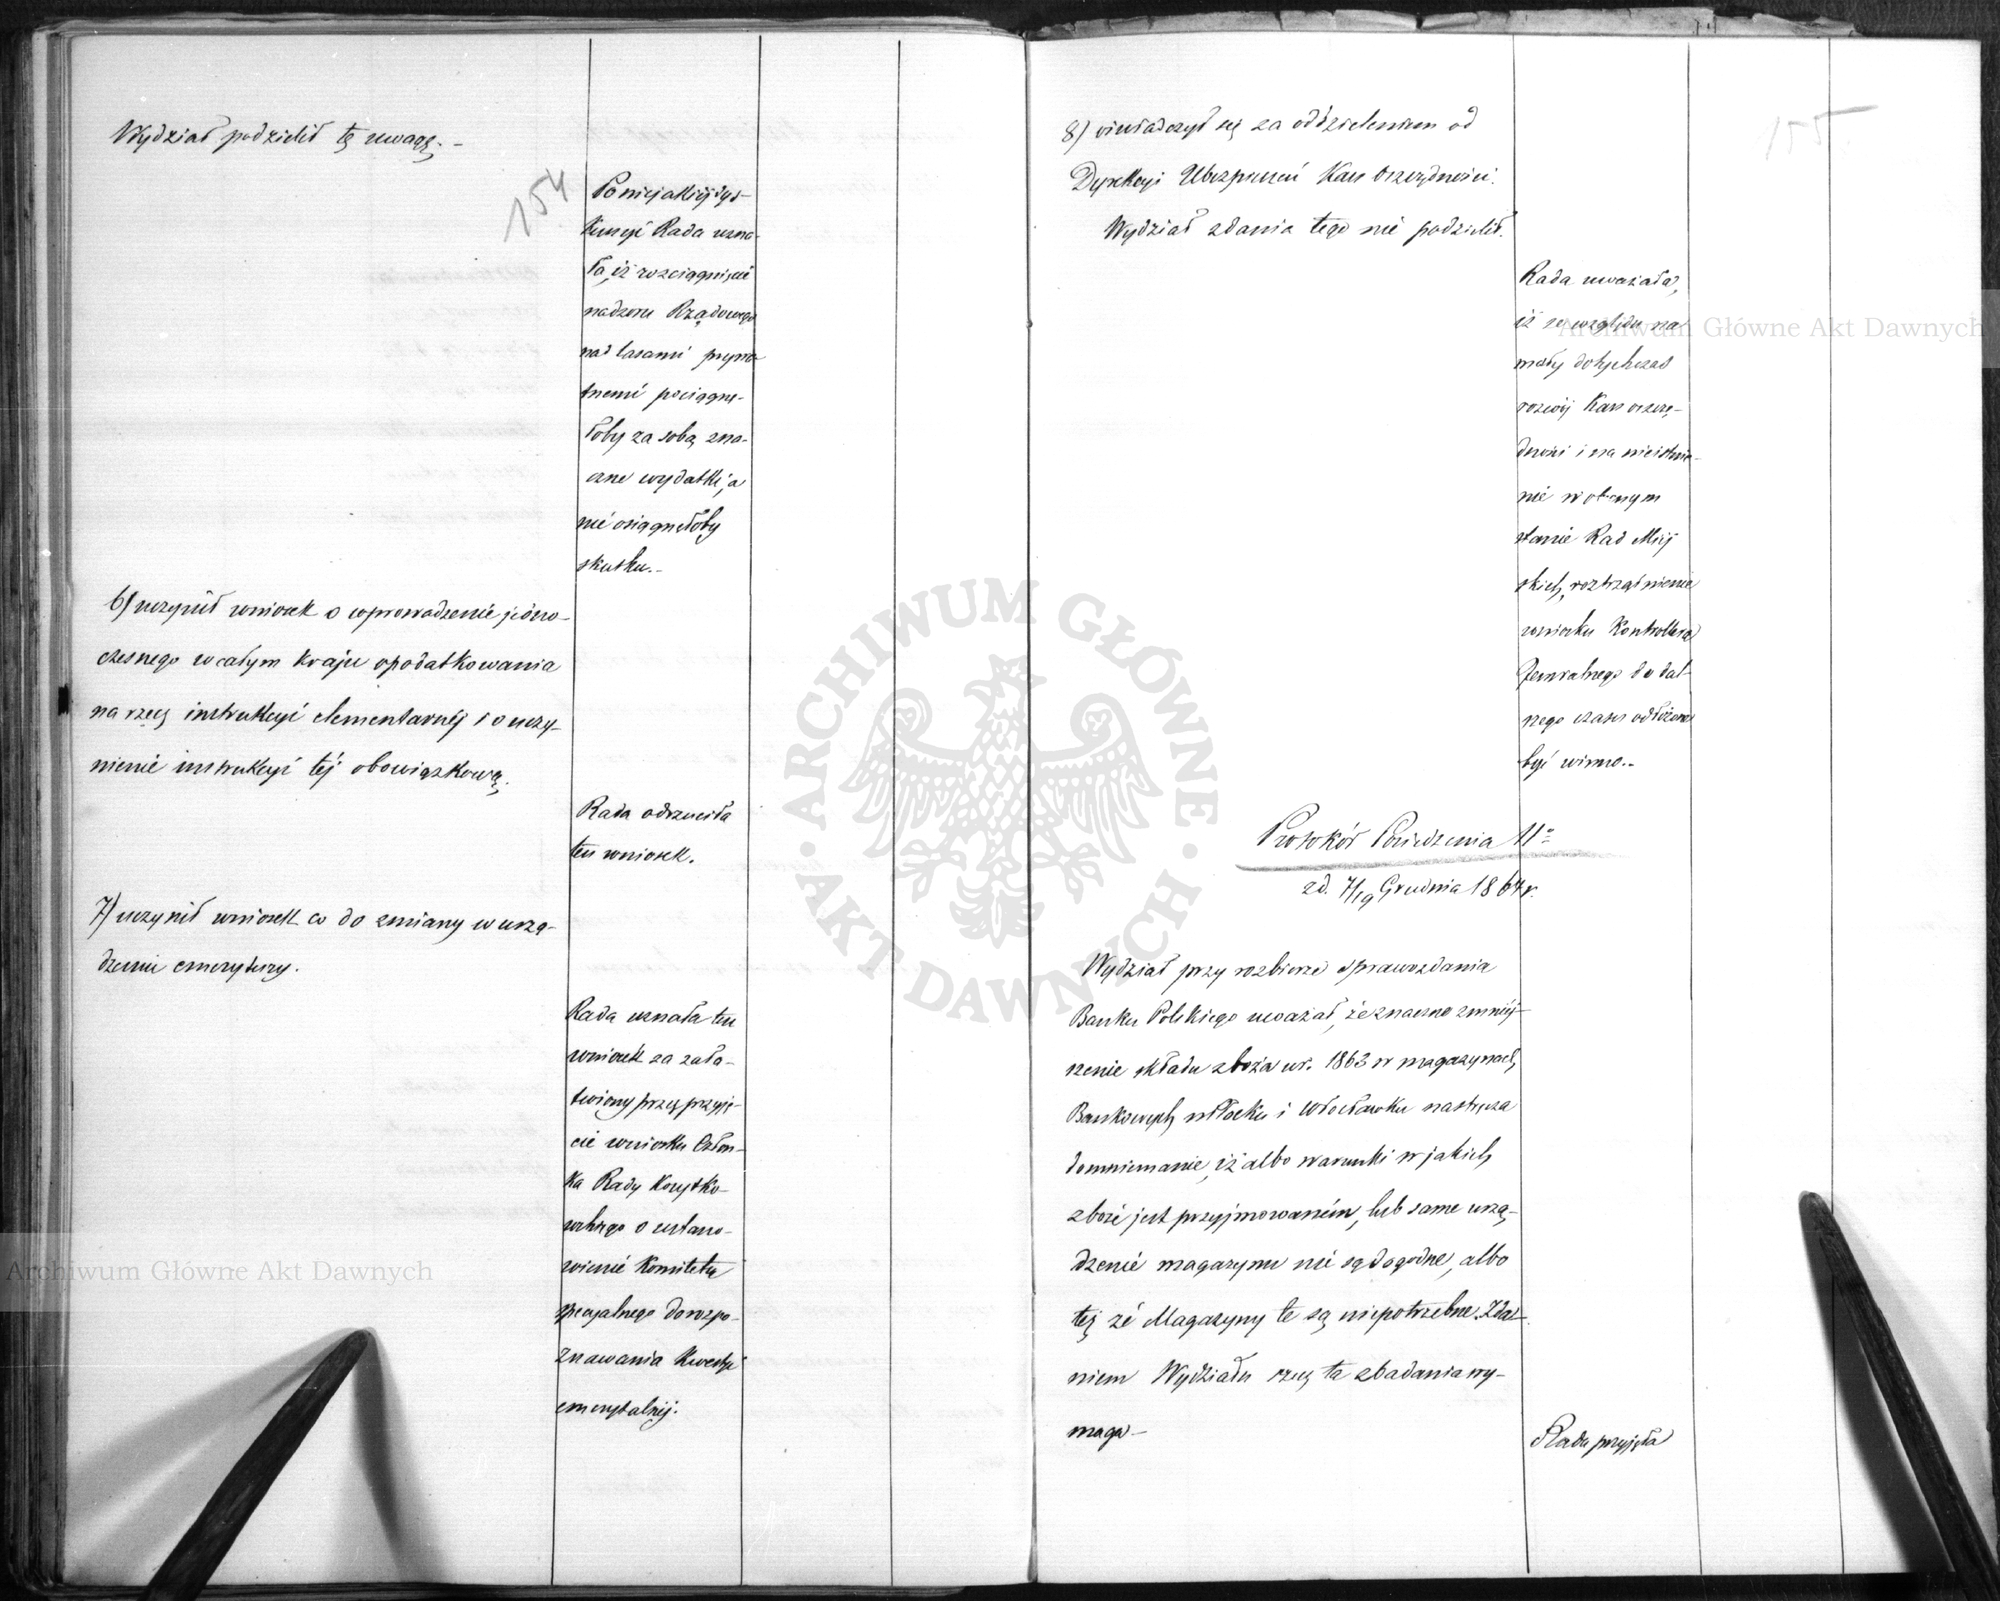 Wydział podzielił tę uwagę. –
154
Po niejakiéj dys-
kussyi Rada uzna-
ła, iż rozciągnięcie
nadzoru Rządowego
nad lasami prywa-
tnemi pociągnę-
łoby za sobą zna-
czne wydatki, a
nie osiągnęłoby
skutku. –
6) uczynił wniosek o wprowadzenie jedno-
czesnego w całym kraju opodatkowania
na rzecz instrukcyi elementarnéj i o uczy-
nienie instrukcyi téj obowiązkową.
Rada odrzuciła
ten wniosek.
7) uczynił wniosek co do zmiany w urzą-
dzeniu emerytury.
Rada uznała ten
wniosek za zała-
twiony przez przyję-
cie wniosku Człon-
ka Rady Korytko-
wskiego o ustano-
wienie Komitetu
specyalnego do rozpo-
znawania Kwestyi
emerytalnéj.
155.
8) oświadczył się za oddzieleniem od
Dyrekcyi Ubezpieczeń Kass Oszczędności.
Wydział zdania tego nie podzielił.
Rada uważała,
iż ze względu na
mały dotychczas
rozwój Kass oszczę-
dności i na nieistnie-
nie w obecnym
stanie Rad Miej
skich, roztrząśnienie
wniosku Kontrollera
Jeneralnego do dal-
szego czasu odłożone
być winno. –
Protokół Posiedzenia 11°
z d. 7/19 Grudnia 1864 r.
Wydział przy rozbiorze sprawozdania
Banku Polskiego uważał, że znaczne zmniéj-
szenie składu zboża w r. 1863 w magazynach
Bankowych w Płocku i Włocławku nastręcza
domniemanie, iż albo warunki w jakich
zboże jest przyjmowaném, lub same urzą-
dzenie magazynu nie są dogodne, albo
też że Magazyny te są niepotrzebne. Zda-
niem Wydziału rzecz ta zbadania wy-
maga –
Rada przyjęła
Archiwum Główne Akt Dawnych
Archiwum Główne Akt Dawnych
ARCHIWUM GŁÓWNE · AKT DAWNYCH ·